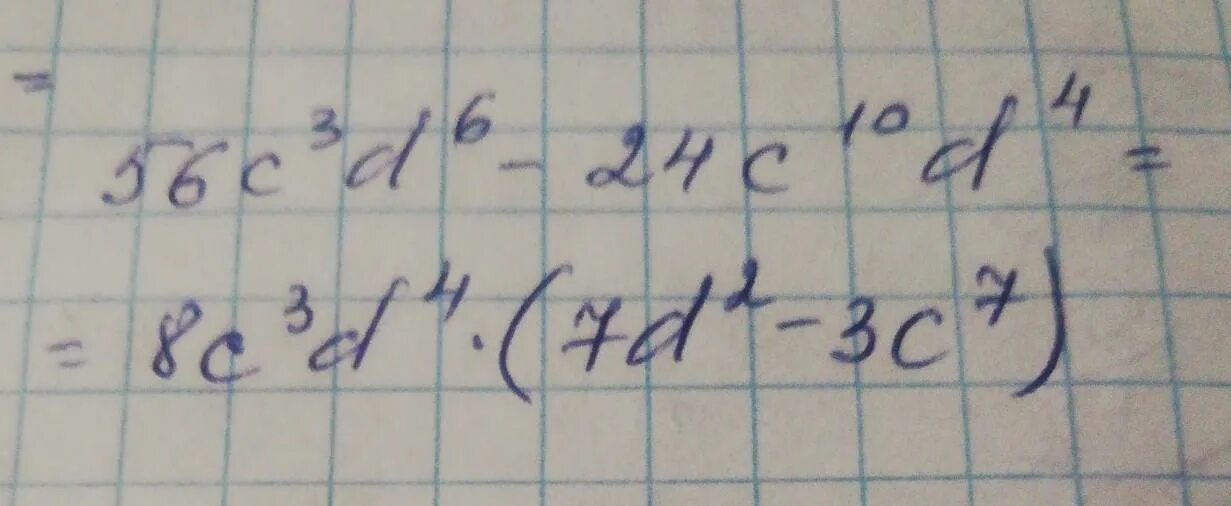 =
56c³d⁶ - 24c¹⁰d⁴ =
= 8c³d⁴ · (7d² - 3c⁷)